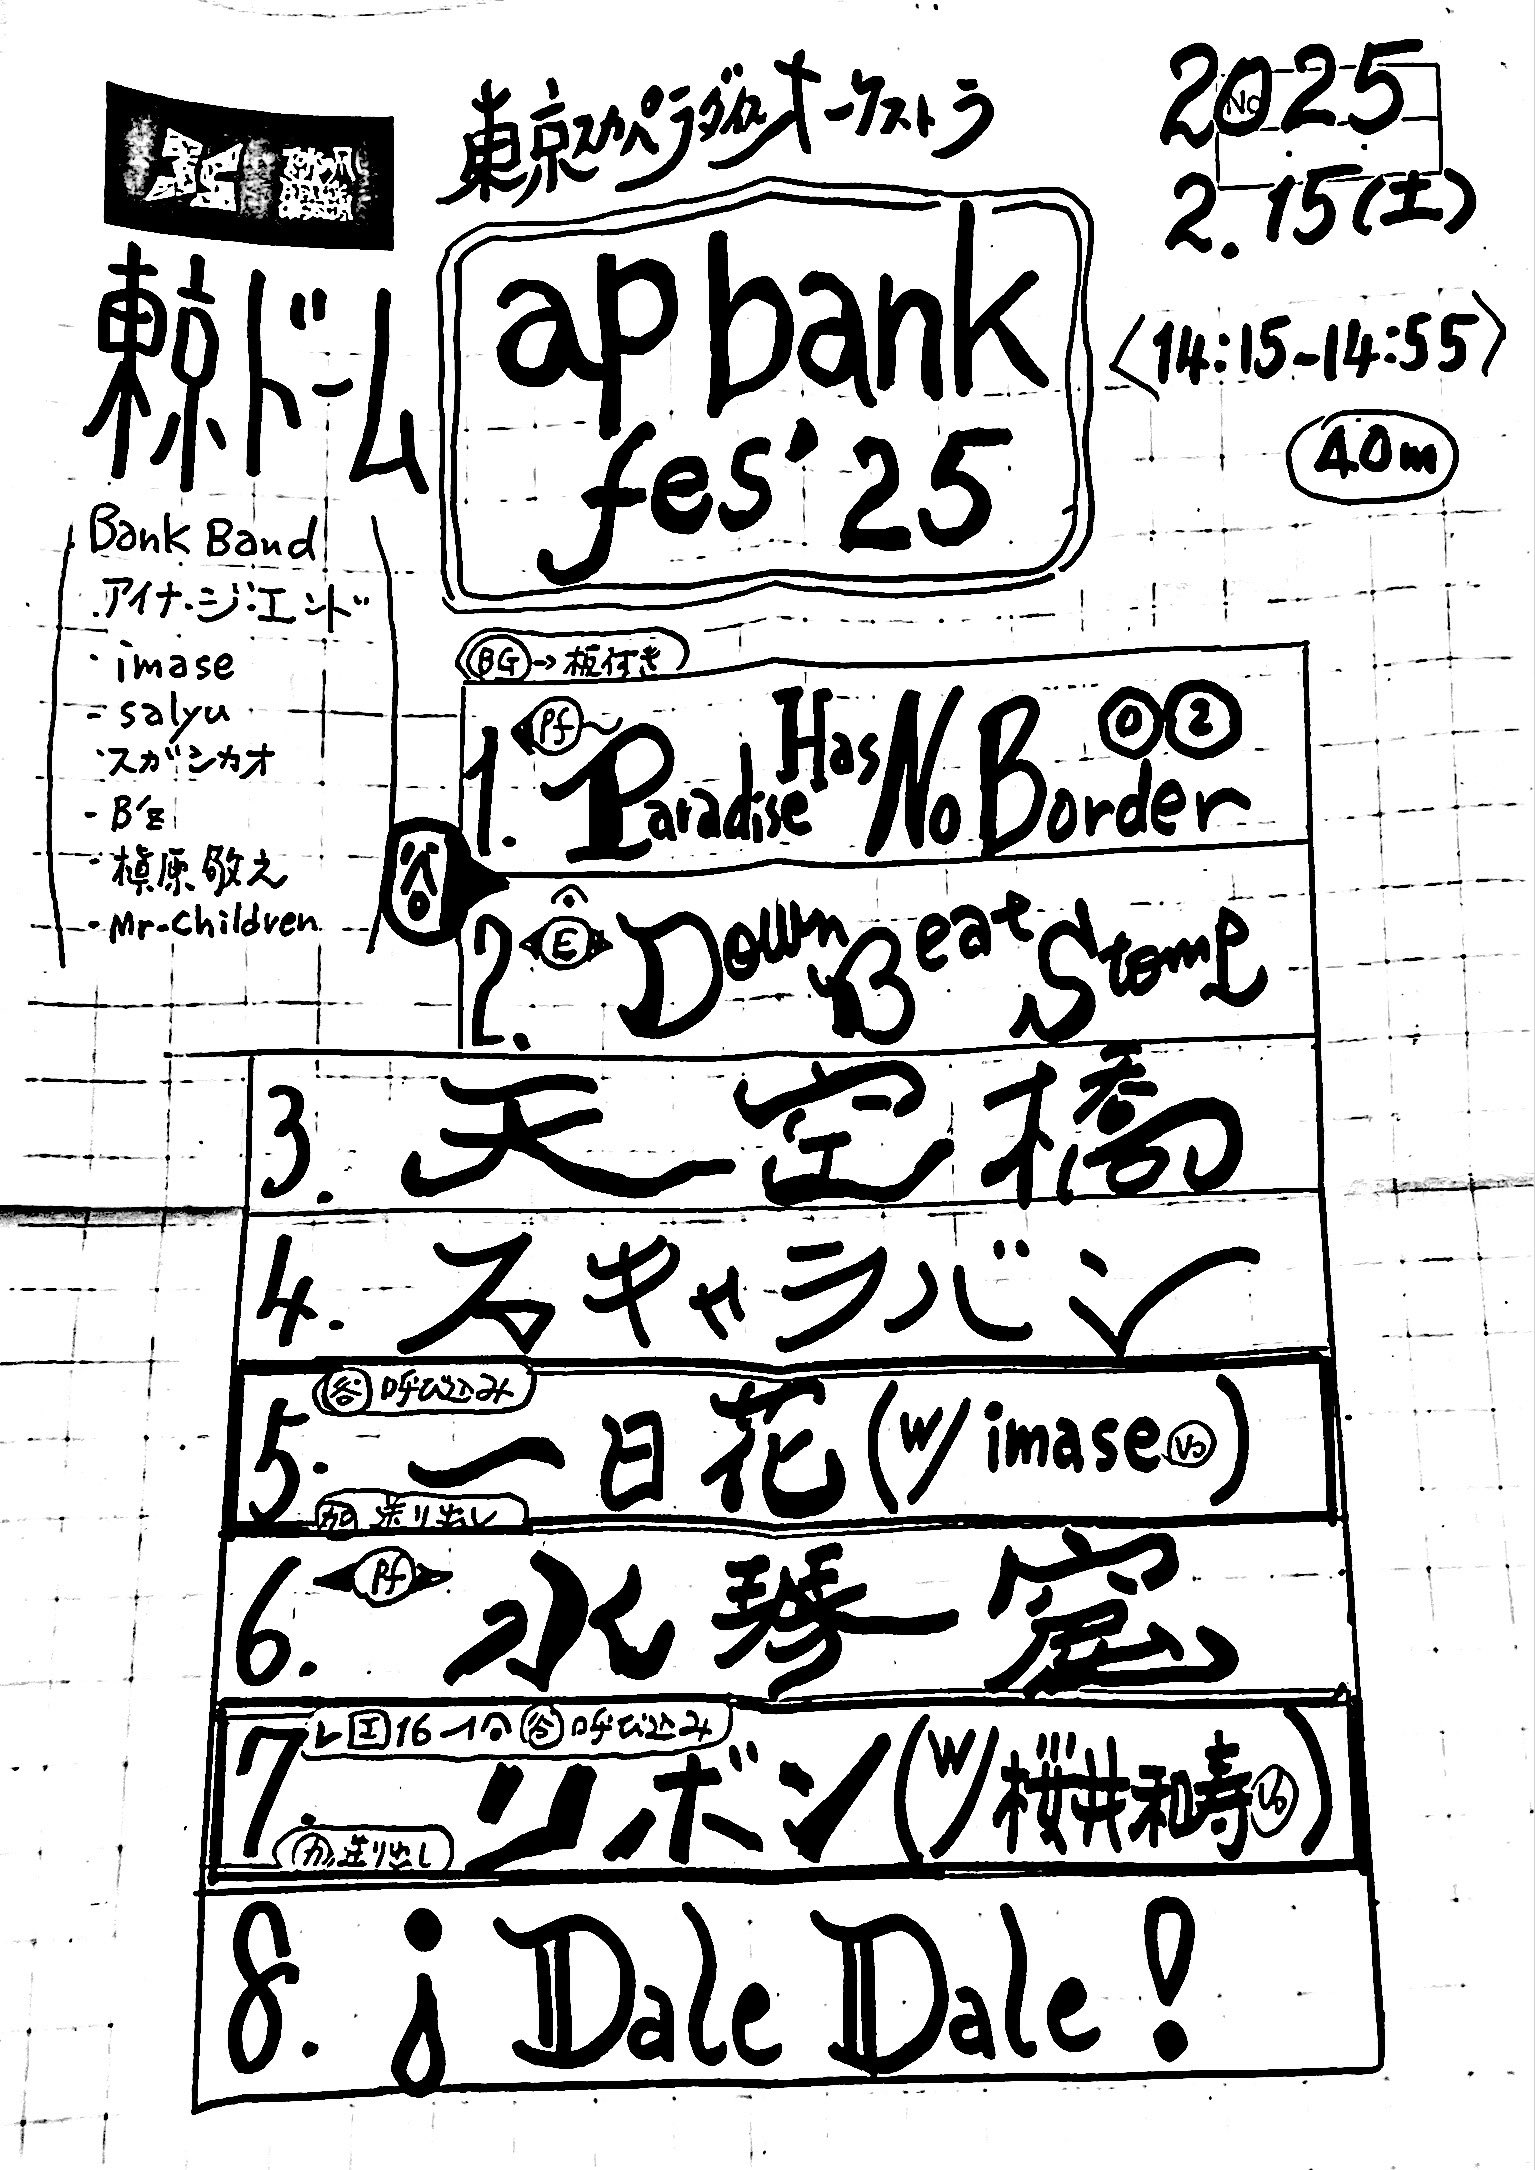 東京スカパラダイスオーケストラ
2025
No
2.15(土)
東京ドーム
ap bank
fes'25
〈14:15-14:55〉
40m
Bank Band
・アイナ・ジ・エンド
・imase
・salyu
・スガシカオ
・B'z
・槇原敬之
・Mr.Children
BG→板付き
1. Pf〜 Paradise Has No Border 0 2
谷
2. E Down Beat Stomp
3. 天空橋
4. スキャラバン
谷 呼び込み
5. 一日花 (w/ imase Vo)
加 送り出し
6. Pf 水琴窟
エ 16 谷 呼び込み
7. リボン (w/ 桜井和寿 Vo)
加 送り出し
8. ¡Dale Dale!